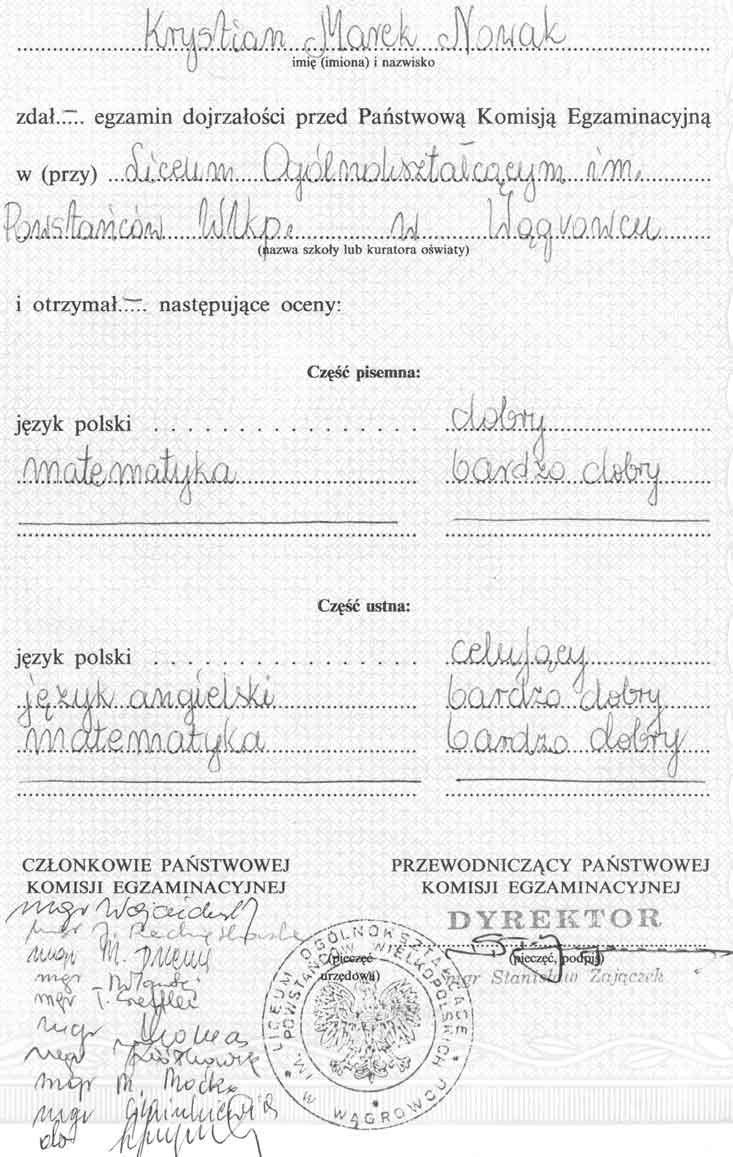 Krystian Marek Nowak
imię (imiona) i nazwisko
zdał.—.. egzamin dojrzałości przed Państwową Komisją Egzaminacyjną
w (przy) Liceum Ogólnokształcącym im.
Powstańców Wlkp. w Wągrowcu
(nazwa szkoły lub kuratora oświaty)
i otrzymał.—.. następujące oceny:
Część pisemna:
język polski . . . . . . . . . . . . . . . . dobry
matematyka bardzo dobry
Część ustna:
język polski . . . . . . . . . . . . . . . . celujący
język angielski bardzo dobry
matematyka bardzo dobry
CZŁONKOWIE PAŃSTWOWEJ
KOMISJI EGZAMINACYJNEJ
PRZEWODNICZĄCY PAŃSTWOWEJ
KOMISJI EGZAMINACYJNEJ
DYREKTOR
(pieczęć, podpis)
mgr Stanisław Zajączek
(pieczęć
urzędowa)
LICEUM OGÓLNOKSZTAŁCĄCE
IM. POWSTAŃCÓW WIELKOPOLSKICH
W WĄGROWCU
mgr
mgr J.
mgr M.
mgr
mgr T.
mgr
mgr
mgr M.
mgr